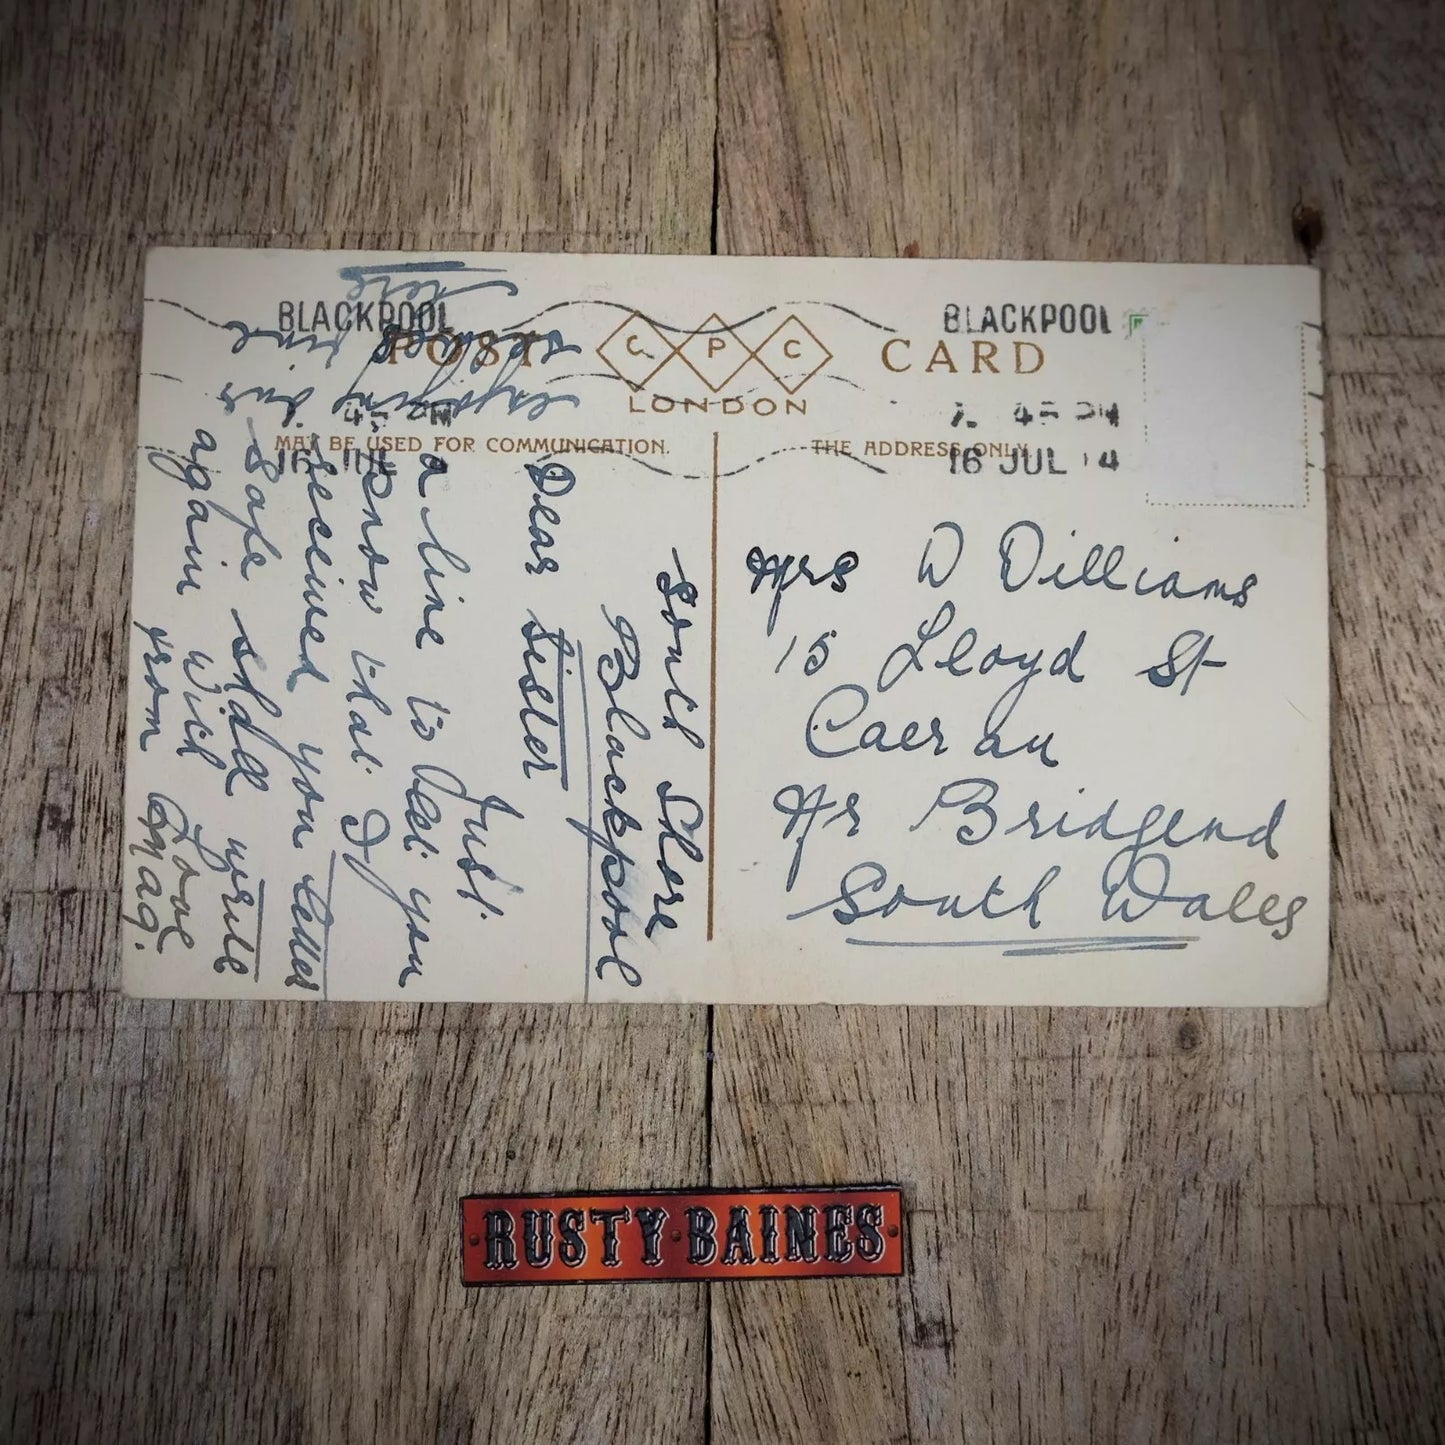 BLACKPOOL
45 PM
16 JUL
POST CARD
C P C
LONDON
BLACKPOOL
45 PM
16 JUL 14
MAY BE USED FOR COMMUNICATION.
THE ADDRESS ONLY.
South Shore
Blackpool
Dear Sister
Just
a line to let you
know that I
received you letter
safe shall write
again with Love
from Mag.
enjoying
here
Mrs W Williams
15 Lloyd St
Caerau
Nr Bridgend
South Wales
RUSTY BAINES